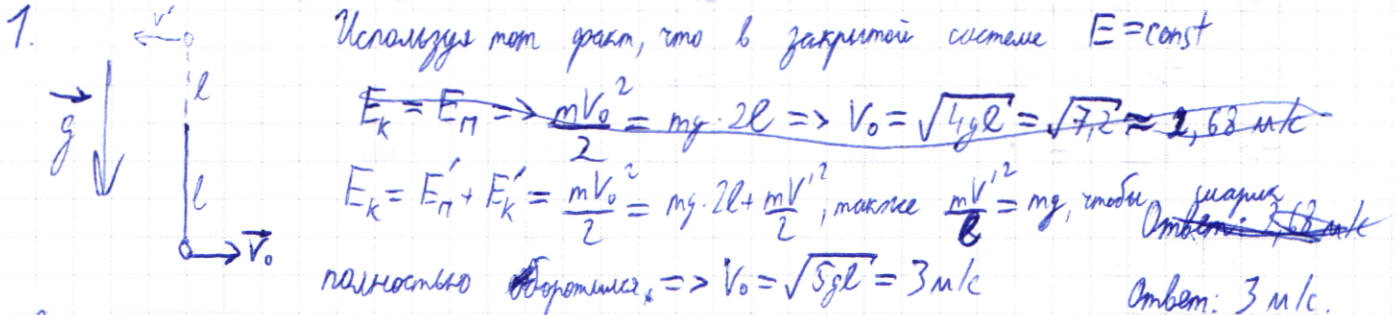 1.
v'
Используя тот факт, что в закрытой системе E = const
l
g
Eк = Eп => mV₀²/2 = mg·2l => V₀ = √4gl = √7,2 ≈ 2,68 м/с
l
Eк = Eп' + Eк' = mV₀²/2 = mg·2l + mV'²/2, также mV'²/l = mg, чтобы шарик
Ответ: 2,68 м/с
V₀
полностью оборотился, => V₀ = √5gl = 3 м/с
Ответ: 3 м/с.